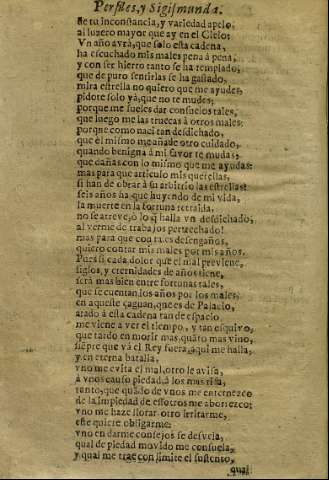 Persiles, y Sigismunda.
de tu inconstancia, y variedad apelo,
al luzero mayor que ay en el Cielo:
Vn año avrà, que solo esta cadena,
ha escuchado mis males pena à pena,
y con ser hierro tanto se ha templado,
que de puro sentirlas se ha gastado,
mira estrella no quiero que me ayudes,
pidote solo yà, que no te mudes;
porque me sueles dar consuelos tales,
que luego me las truecas à otros males:
porque como naci tan desdichado,
que èl mismo me añade otro cuidado,
quando benigna à mi favor te mudas;
que dañas con lo mismo que me ayudas:
mas para que articulo mis querellas,
si han de obrar à su arbitrio las estrellas?
seis años ha que huyendo de mi vida,
la muerte en la fortuna retraida,
no se atreve, ò lo q̃ halla vn desdichado,
al verme de trabajos pertrechado!
mas para que con tales desengaños,
quiero contar mis males por mis años.
Pues si cada dolor que el mal previene,
siglos, y eternidades de años tiene,
serà mas bien entre fortunas tales,
que se cuentan los años por los males;
en aqueste çaguan, que es de Palacio,
atado à esta cadena tan de espacio
me viene a ver el tiempo, y tan esquivo,
que tardo en morir mas, quãto mas vivo,
siẽpre que và el Rey fuera, aqui me halla,
y en eterna batalla,
vno me evita el mal, otro le avisa,
à vnos causo piedad, à los mas risa,
tanto, que quãdo de vnos me enternezco
de la impiedad de essotros me aborrezco;
vno me haze llorar, otro irritarme,
este quiere obligarme:
vno en darme consejos se desvela,
qual de piedad movido me consuela,
y qual me trae con limite el sustento,
qual